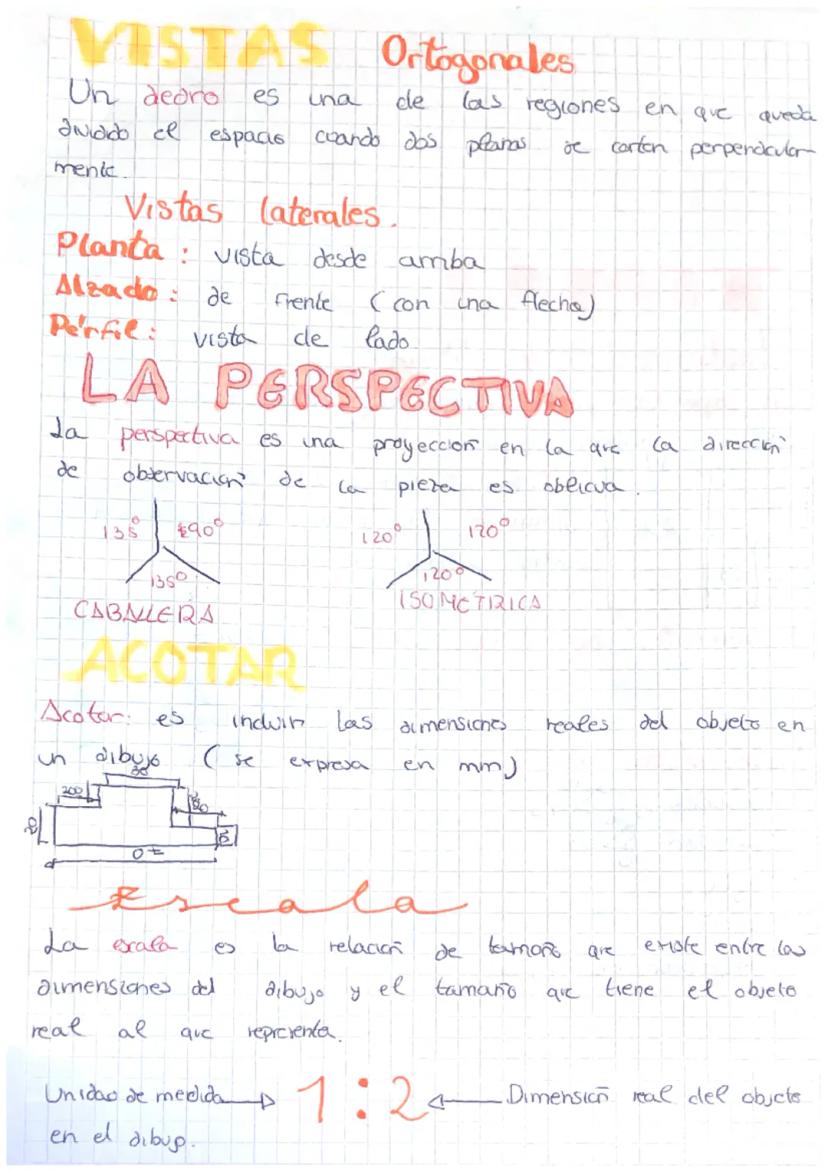 VISTAS Ortogonales
Un dedro es una de las regiones en que queda
dividido el espacio cuando dos planos se cortan perpendicular-
mente.
Vistas laterales.
Planta: vista desde arriba
Alzado: de frente (con una flecha)
Pérfil: vista de lado
LA PERSPECTIVA
La perspectiva es una proyección en la que la dirección
de observación de la pieza es oblicua.
135° 90° 120° 120°
135° 120°
CABALLERA ISOMETIRICA
ACOTAR
Acotar: es incluir las dimensiones reales del objeto en
un dibujo (se expresa en mm)
200
Escala
La escala es la relación de tamaño que existe entre las
dimensiones del dibujo y el tamaño que tiene el objeto
real al que representa.
Unidad de medida 1:2 Dimensión real del objeto
en el dibujo.